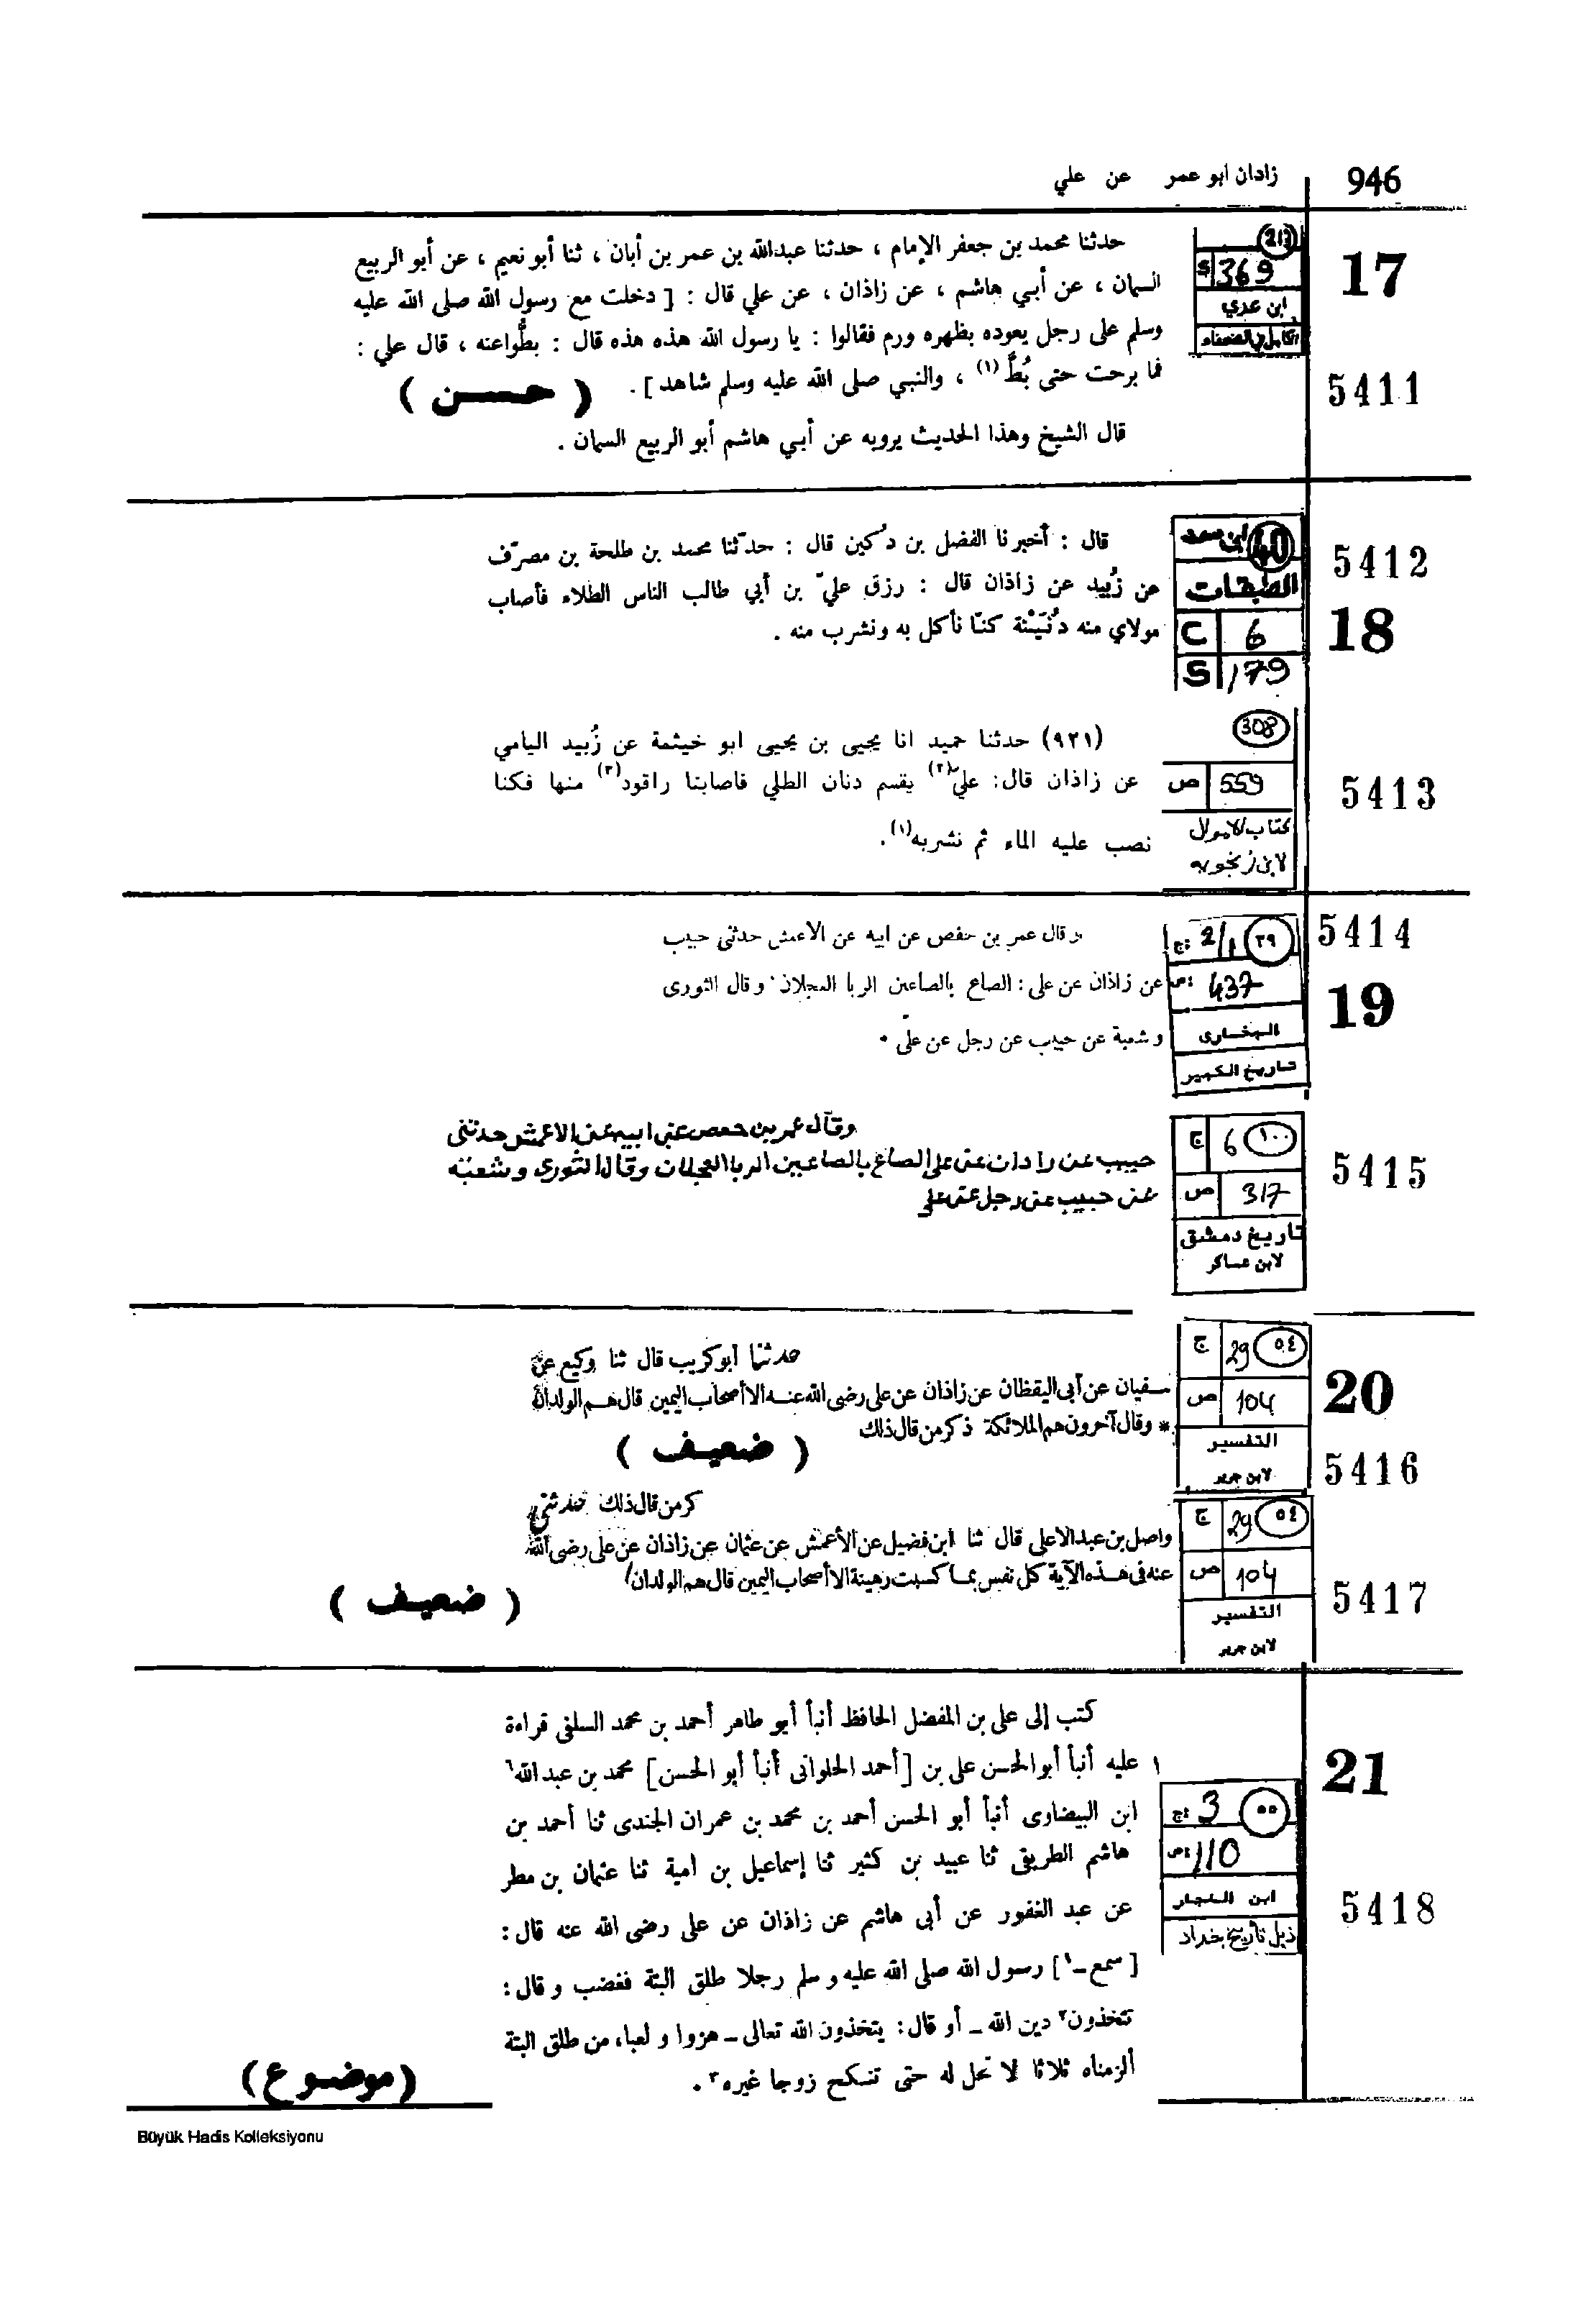 زادان ابو عمر عن علي
946
حدثنا محمد بن جعفر الإمام ، حدثنا عبدالله بن عمر بن أبان ، ثنا أبو نعيم ، عن أبو الربيع
السمان ، عن أبي هاشم ، عن زاذان ، عن علي قال : [ دخلت مع رسول الله صلى الله عليه
وسلم على رجل يعوده بظهره ورم فقالوا : يا رسول الله هذه هذه قال : بطُّواعنه ، قال علي :
فما برحت حتى بُطَّ (١) ، والنبي صلى الله عليه وسلم شاهد ] .
( حسن )
قال الشيخ وهذا الحديث يرويه عن أبي هاشم أبو الربيع السمان .
213
S 369
ابن عدي
الكامل في الضعفاء
17
5411
قال : أخبرنا الفضل بن دُكين قال : حدّثنا محمد بن طلحة بن مصرّف
عن زُبيد عن زاذان قال : رزق عليّ بن أبي طالب الناس الطلاء فأصاب
مولاي منه دُنَيْنَة كنّا نأكل به ونشرب منه .
40
ابن سعد
الطبقات
C 6
S 179
5412
18
(٩٢١) حدثنا حميد انا يحيى بن يحيى ابو خيثمة عن زُبيد اليامي
عن زاذان قال: عليّ(٢) يقسم دنان الطلي فاصابنا راقود(٣) منها فكنا
نصب عليه الماء ثم نشربه(١).
308
ص 559
كتاب الاموال
لابن زنجويه
5413
و قال عمر بن حفص عن ابيه عن الاعمش حدثني حبيب
عن زاذان عن على : الصاع بالصاعين الربا العجلان . و قال الثورى
و شعبة عن حبيب عن رجل عن علىّ •
٣٩
ج: 2/1
ص: 437
البخارى
تاريخ الكبير
5414
19
وقال عمر بن حفص عن ابيه عن الاعمش حدثنى
حبيب عن زادان عن على الصاع بالصاعين الربا العجلان وقال الثوري وشعبة
عن حبيب عن رجل عن علي
١٠٠
ج 6
ص 317
تاريخ دمشق
لابن عساكر
5415
حدثنا أبو كريب قال ثنا وكيع عن
سفيان عن أبى اليقظان عن زاذان عن على رضى الله عنه الا أصحاب اليمين قال هم الولدان
* وقال آخرون هم الملائكة ذكر من قال ذلك
( ضعيف )
٥٤
ج 29
ص 104
التفسير
لابن جرير
20
5416
كر من قال ذلك حدثنى
واصل بن عبد الاعلى قال ثنا ابن فضيل عن الأعمش عن عثمان عن زاذان عن على رضى الله
عنه فى هذه الآية كل نفس بما كسبت رهينة الا أصحاب اليمين قال هم الولدان
( ضعيف )
٥٤
ج 29
ص 104
التفسير
لابن جرير
5417
كتب إلى على بن المفضل الحافظ أنبأ أبو طاهر أحمد بن محمد السلفى قراءة
١ عليه أنبأ أبو الحسن على بن [أحمد الحلوانى أنبأ أبو الحسن] محمد بن عبد الله٦
ابن البيضاوى أنبأ أبو الحسن أحمد بن محمد بن عمران الجندى ثنا أحمد بن
هاشم الطريقى ثنا عبيد بن كثير ثنا إسماعيل بن امية ثنا عثمان بن مطر
عن عبد الغفور عن أبى هاشم عن زاذان عن على رضى الله عنه قال :
[ سمع -١] رسول الله صلى الله عليه و سلم رجلا طلق البتة فغضب و قال :
تتخذون٢ دين الله - أو قال : يتخذون الله تعالى - هزوا و لعبا، من طلق البتة
ألزمناه ثلاثا لا تحل له حتى تنكح زوجا غيره٣ .
(موضوع)
21
٥٥
ج: 3
ص: 110
ابن النجار
ذيل تاريخ بغداد
5418
Büyük Hadis Kolleksiyonu